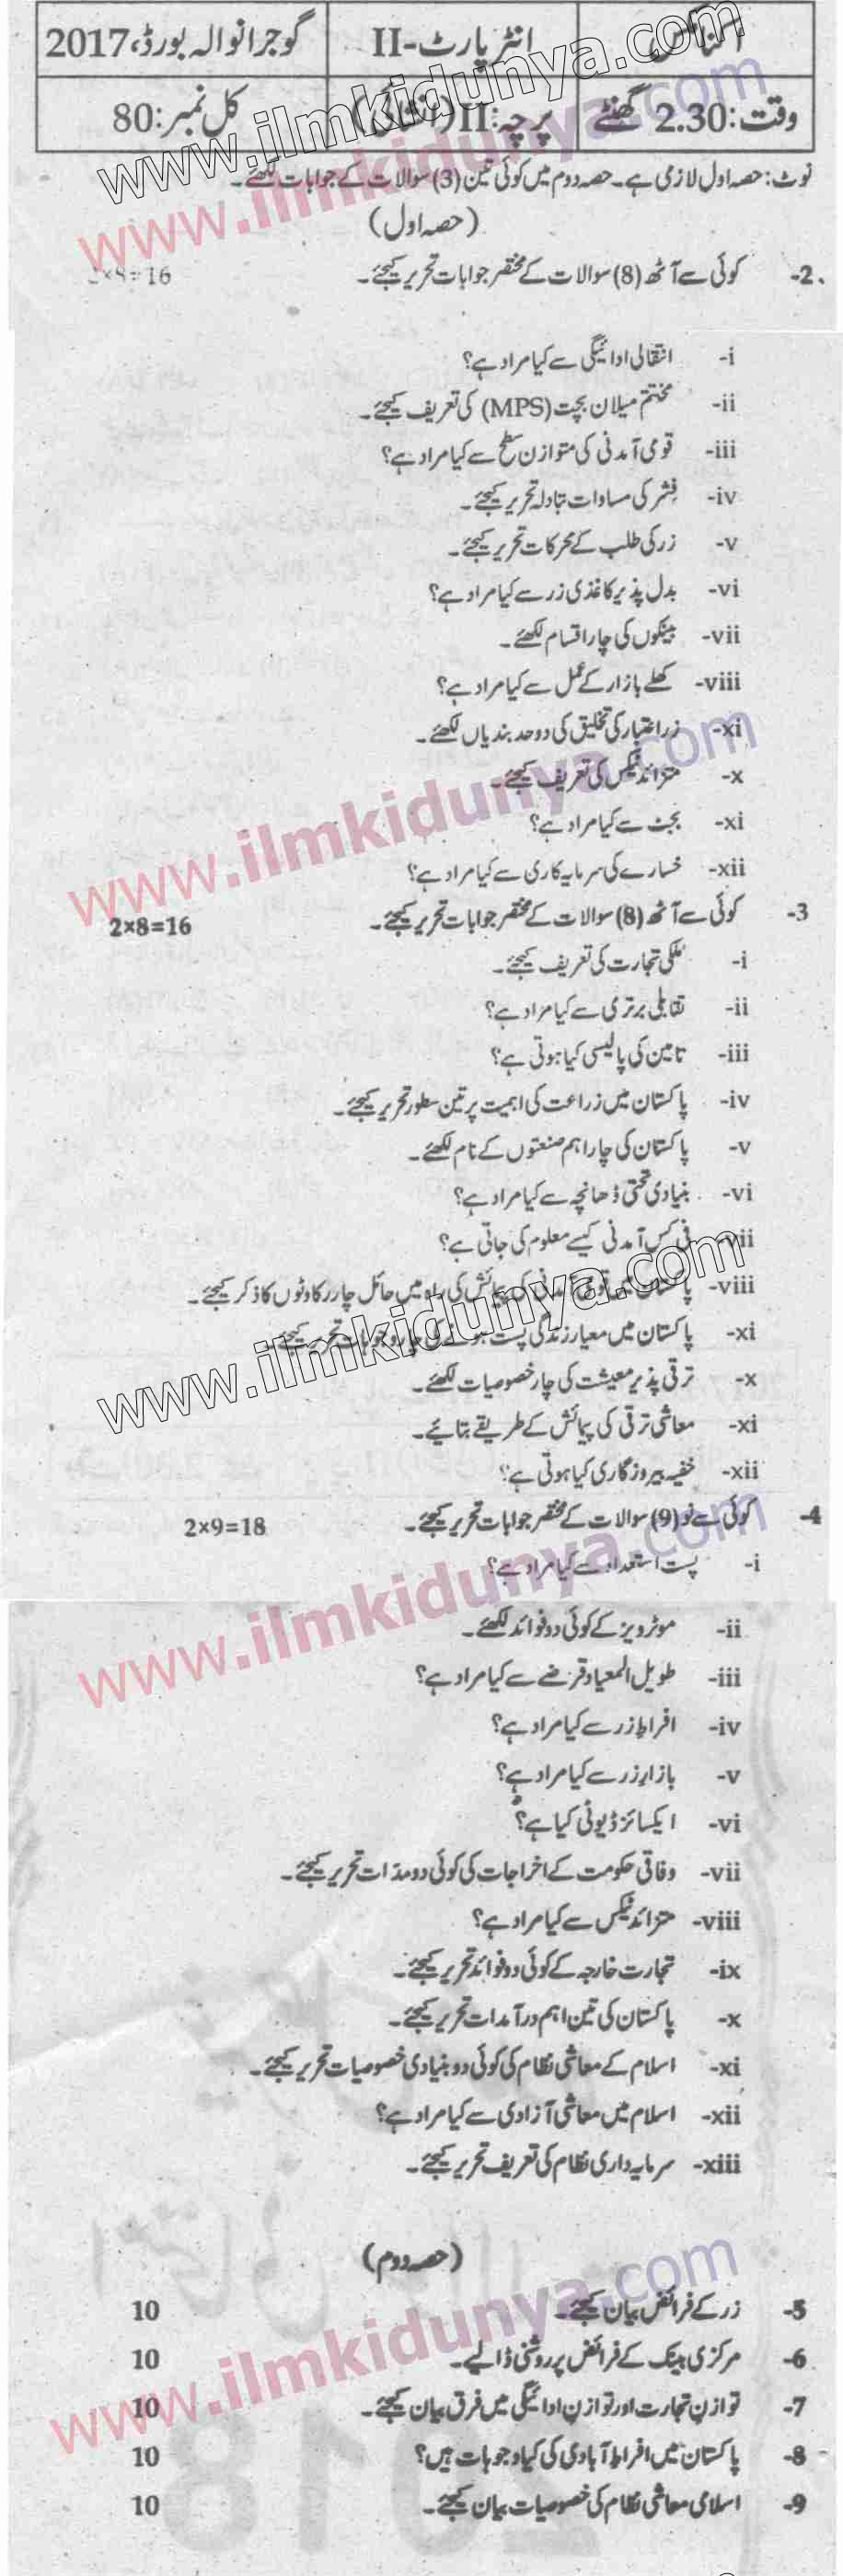 اکنامکس انٹر پارٹ-II گوجرانوالہ بورڈ، 2017
وقت: 2.30 گھنٹے پرچہ: II (انشائی) کل نمبر: 80
نوٹ: حصہ اول لازمی ہے۔ حصہ دوم میں کوئی تین (3) سوالات کے جوابات لکھئے۔
(حصہ اول)
2- کوئی سے آٹھ (8) سوالات کے مختصر جوابات تحریر کیجئے۔ 2×8=16
i- انتقالی ادائیگی سے کیا مراد ہے؟
ii- مختتم میلان بچت (MPS) کی تعریف کیجئے۔
iii- قومی آمدنی کی متوازن سطح سے کیا مراد ہے؟
iv- فشر کی مساوات تبادلہ تحریر کیجئے۔
v- زر کی طلب کے محرکات تحریر کیجئے۔
vi- بدل پذیر کاغذی زر سے کیا مراد ہے؟
vii- بینکوں کی چار اقسام لکھئے۔
viii- کھلے بازار کے عمل سے کیا مراد ہے؟
xi- زر اعتبار کی تخلیق کی دو حد بندیاں لکھئے۔
x- متزائد ٹیکس کی تعریف کیجئے۔
xi- بجٹ سے کیا مراد ہے؟
xii- خسارے کی سرمایہ کاری سے کیا مراد ہے؟
3- کوئی سے آٹھ (8) سوالات کے مختصر جوابات تحریر کیجئے۔ 2×8=16
i- ملکی تجارت کی تعریف کیجئے۔
ii- تقابلی برتری سے کیا مراد ہے؟
iii- تامین کی پالیسی کیا ہوتی ہے؟
iv- پاکستان میں زراعت کی اہمیت پر تین سطور تحریر کیجئے۔
v- پاکستان کی چار اہم صنعتوں کے نام لکھئے۔
vi- بنیادی تحتی ڈھانچہ سے کیا مراد ہے؟
vii- فی کس آمدنی کیسے معلوم کی جاتی ہے؟
viii- پاکستان میں قومی آمدنی کی پیمائش کی راہ میں حائل چار رکاوٹوں کا ذکر کیجئے۔
xi- پاکستان میں معیار زندگی پست ہونے کی چار وجوہات تحریر کیجئے۔
x- ترقی پذیر معیشت کی چار خصوصیات لکھئے۔
xi- معاشی ترقی کی پیمائش کے طریقے بتائیے۔
xii- خفیہ بیروزگاری کیا ہوتی ہے؟
4- کوئی سے نو (9) سوالات کے مختصر جوابات تحریر کیجئے۔ 2×9=18
i- پست استعداد سے کیا مراد ہے؟
ii- موٹرویز کے کوئی دو فوائد لکھئے۔
iii- طویل المعیاد قرضے سے کیا مراد ہے؟
iv- افراط زر سے کیا مراد ہے؟
v- بازار زر سے کیا مراد ہے؟
vi- ایکسائز ڈیوٹی کیا ہے؟
vii- وفاقی حکومت کے اخراجات کی کوئی دو مدات تحریر کیجئے۔
viii- متزائد ٹیکس سے کیا مراد ہے؟
ix- تجارت خارجہ کے کوئی دو فوائد تحریر کیجئے۔
x- پاکستان کی تین اہم درآمدات تحریر کیجئے۔
xi- اسلام کے معاشی نظام کی کوئی دو بنیادی خصوصیات تحریر کیجئے۔
xii- اسلام میں معاشی آزادی سے کیا مراد ہے؟
xiii- سرمایہ داری نظام کی تعریف تحریر کیجئے۔
(حصہ دوم)
5- زر کے فرائض بیان کیجئے۔ 10
6- مرکزی بینک کے فرائض پر روشنی ڈالیے۔ 10
7- توازنِ تجارت اور توازنِ ادائیگی میں فرق بیان کیجئے۔ 10
8- پاکستان میں افراطِ آبادی کی کیا وجوہات ہیں؟ 10
9- اسلامی معاشی نظام کی خصوصیات بیان کیجئے۔ 10
www.ilmkidunya.com
www.ilmkidunya.com
www.ilmkidunya.com
www.ilmkidunya.com
www.ilmkidunya.com
www.ilmkidunya.com